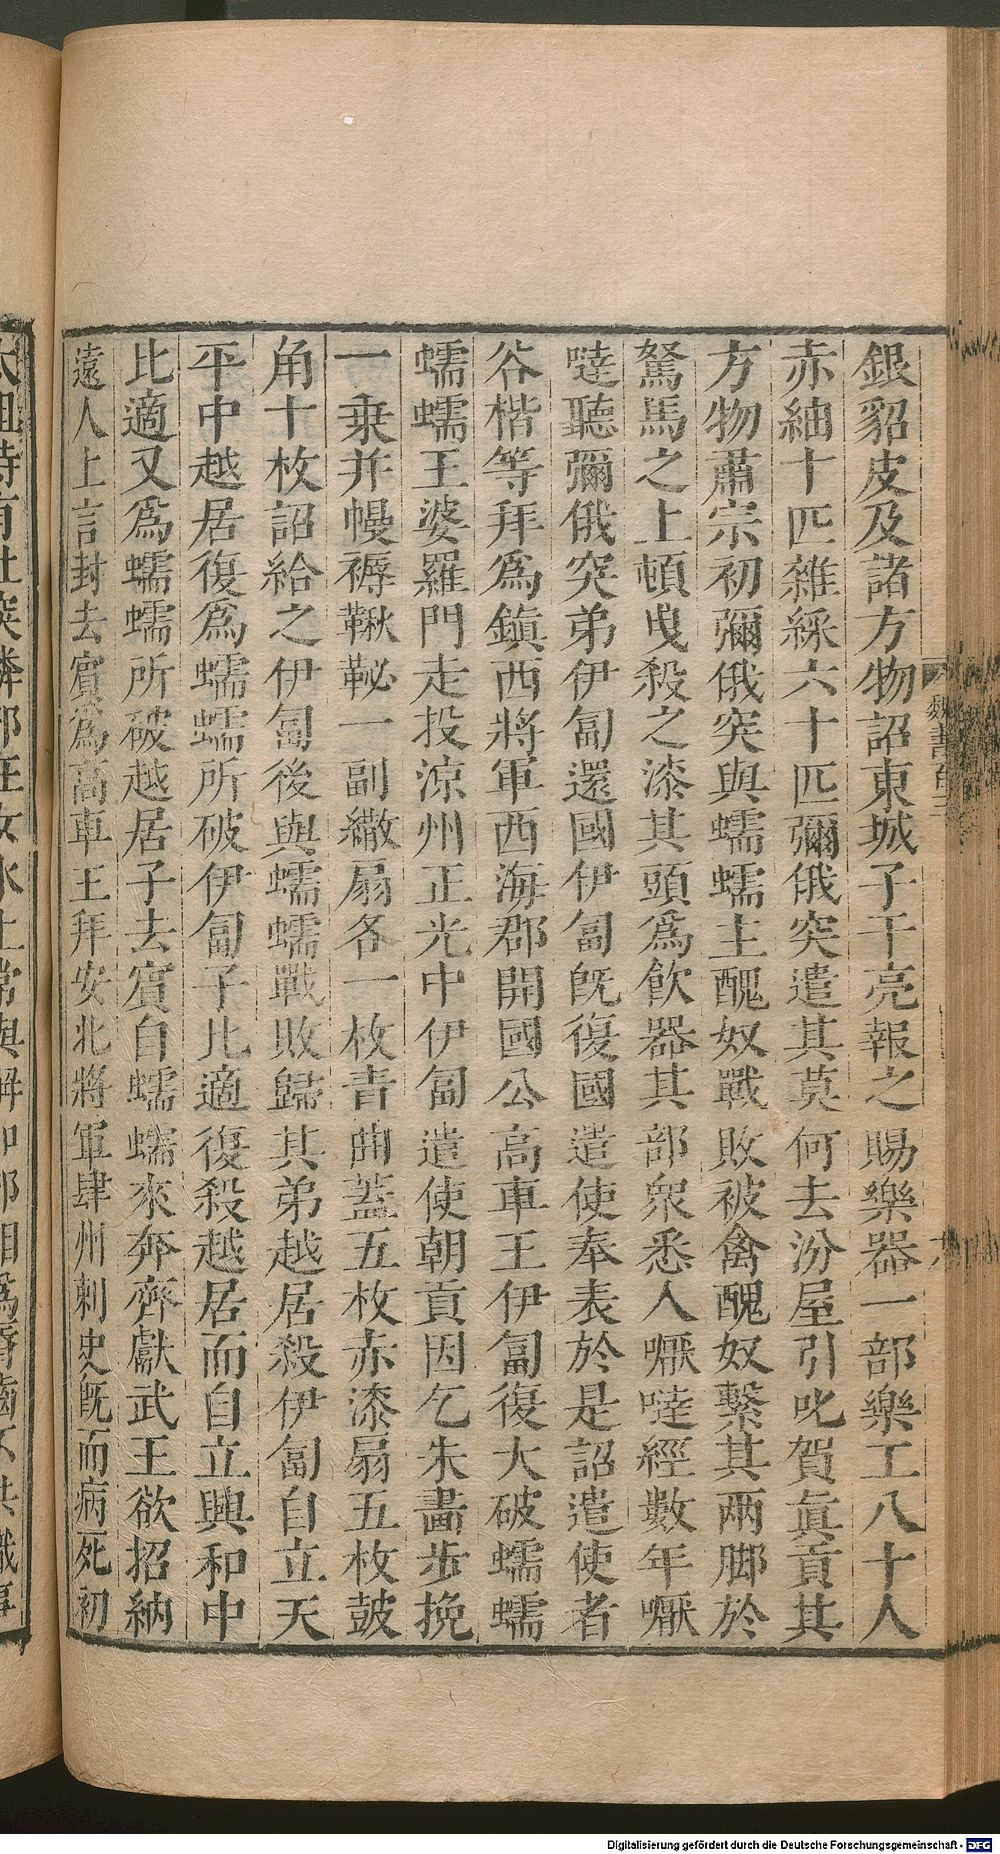 銀貂皮及諸方物詔東城子于亮報之賜樂器一部樂工八十人
赤紬十匹雜綵六十匹彌俄突遣其莫何去汾屋引叱賀眞貢其
方物肅宗初彌俄突與蠕蠕主醜奴戰敗被禽醜奴繫其兩脚於
駑馬之上頓曳殺之漆其頭爲飲器其部衆悉入嚈噠經數年嚈
噠聽彌俄突弟伊匐還國伊匐旣復國遣使奉表於是詔遣使者
谷楷等拜爲鎮西將軍西海郡開國公高車王伊匐復大破蠕蠕
蠕蠕王婆羅門走投涼州正光中伊匐遣使朝貢因乞朱畵步挽
一乗并幔褥鞦䪐一副繖扇各一枚青曲蓋五枚赤漆扇五枚鼓
角十枚詔給之伊匐後與蠕蠕戰敗歸其弟越居殺伊匐自立天
平中越居復爲蠕蠕所破伊匐子比適復殺越居而自立興和中
比適又爲蠕蠕所破越居子去賓自蠕蠕來奔齊獻武王欲招納
遠人上言封去賓爲高車王拜安北將軍肆州刺史旣而病死初
魏書百三